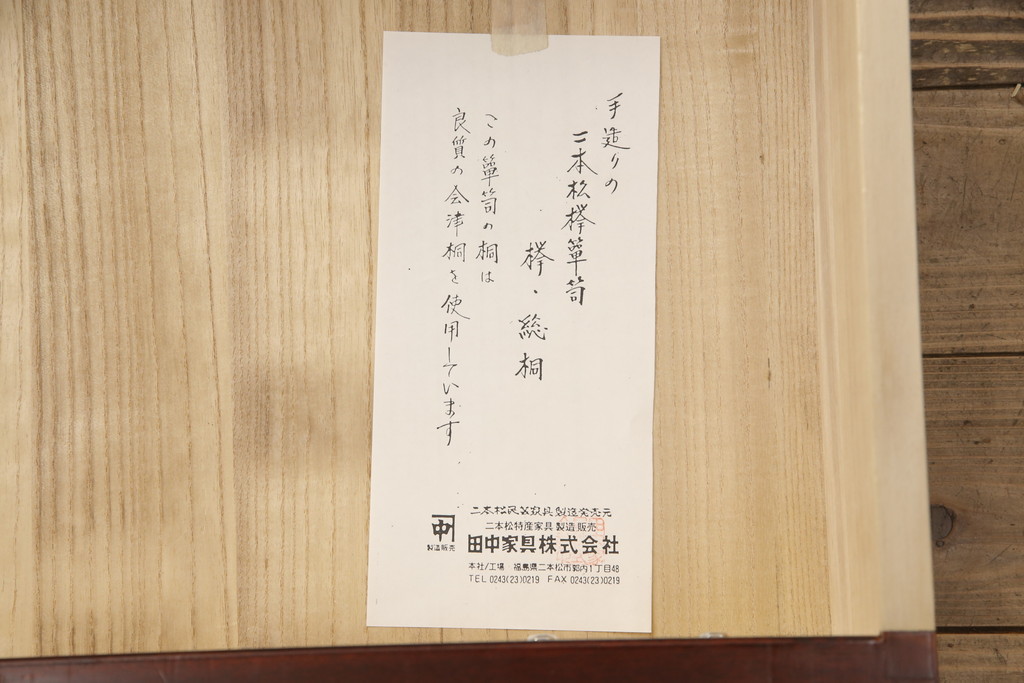 手造りの
二本松欅簞笥
欅・総桐
この簞笥の桐は
良質の会津桐を使用しています
二本松民芸家具製造発売元
二本松特産家具製造販売
製造販売
田中家具株式会社
本社/工場 福島県二本松市郭内1丁目48
TEL 0243(23)0219 FAX 0243(23)0219